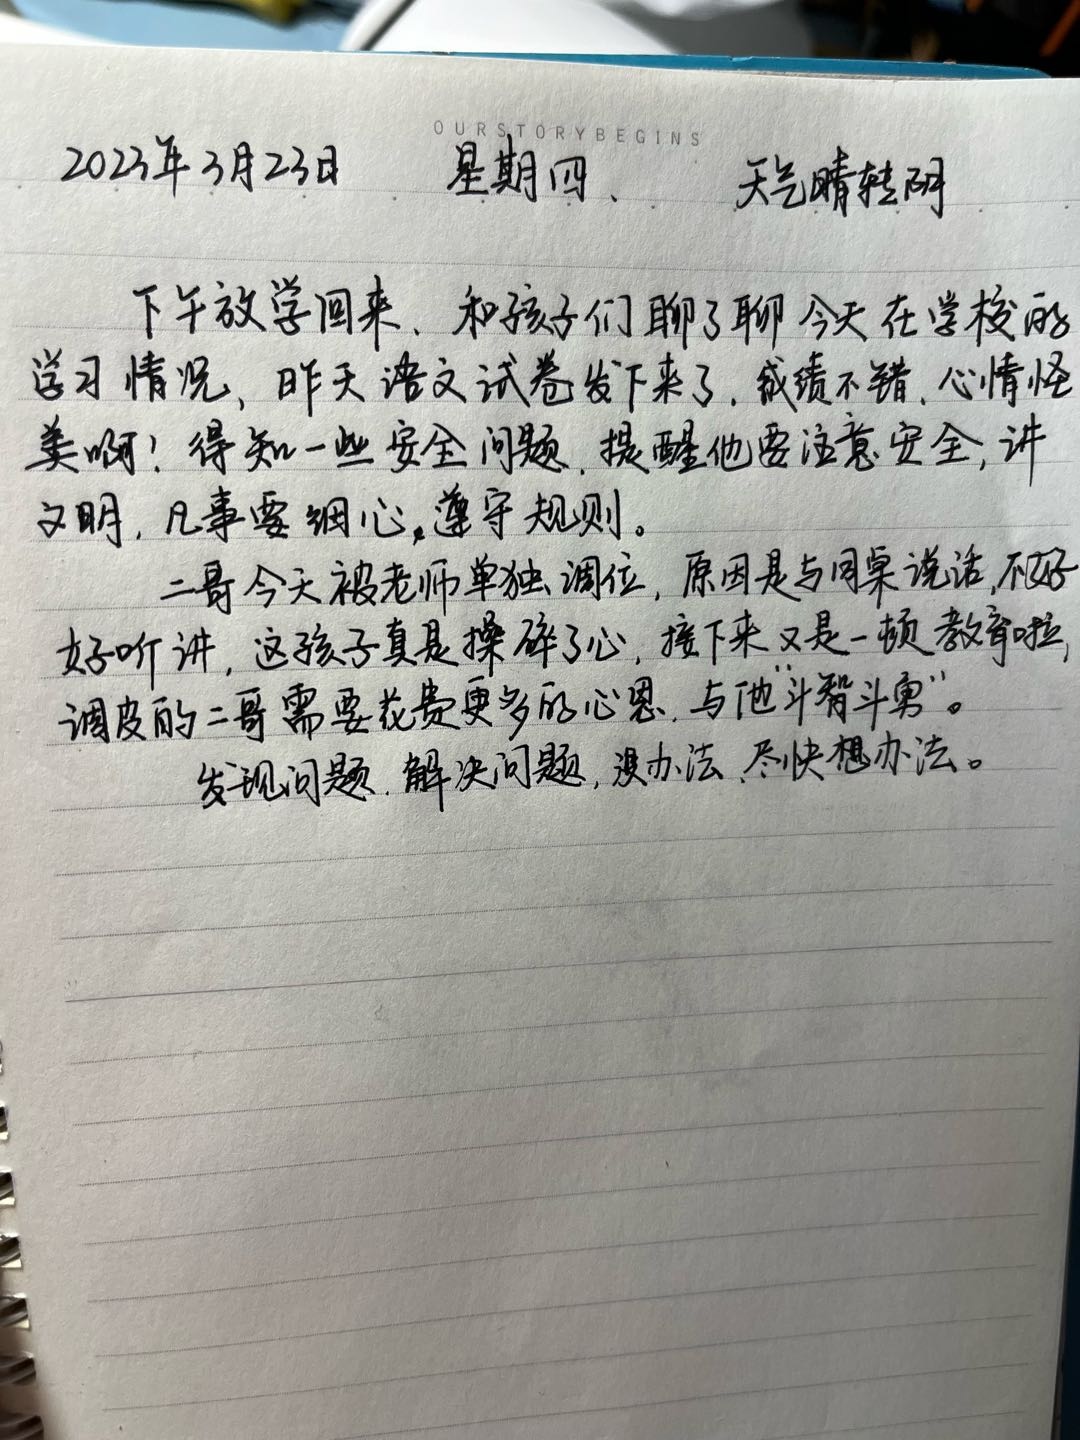 OURSTORYBEGINS
2023年3月23日 星期四、 天气晴转阴
下午放学回来、和孩子们聊了聊今天在学校的
学习情况、昨天语文试卷发下来了,成绩不错,心情怪
美啊!得知一些安全问题,提醒他要注意安全,讲
文明,凡事要细心,遵守规则。
二哥今天被老师单独调位,原因是与同桌说话,不好
好听讲,这孩子真是操碎了心,接下来又是一顿教育啦,
调皮的二哥需要花费更多的心思,与他“斗智斗勇”。
发现问题,解决问题,没办法、尽快想办法。